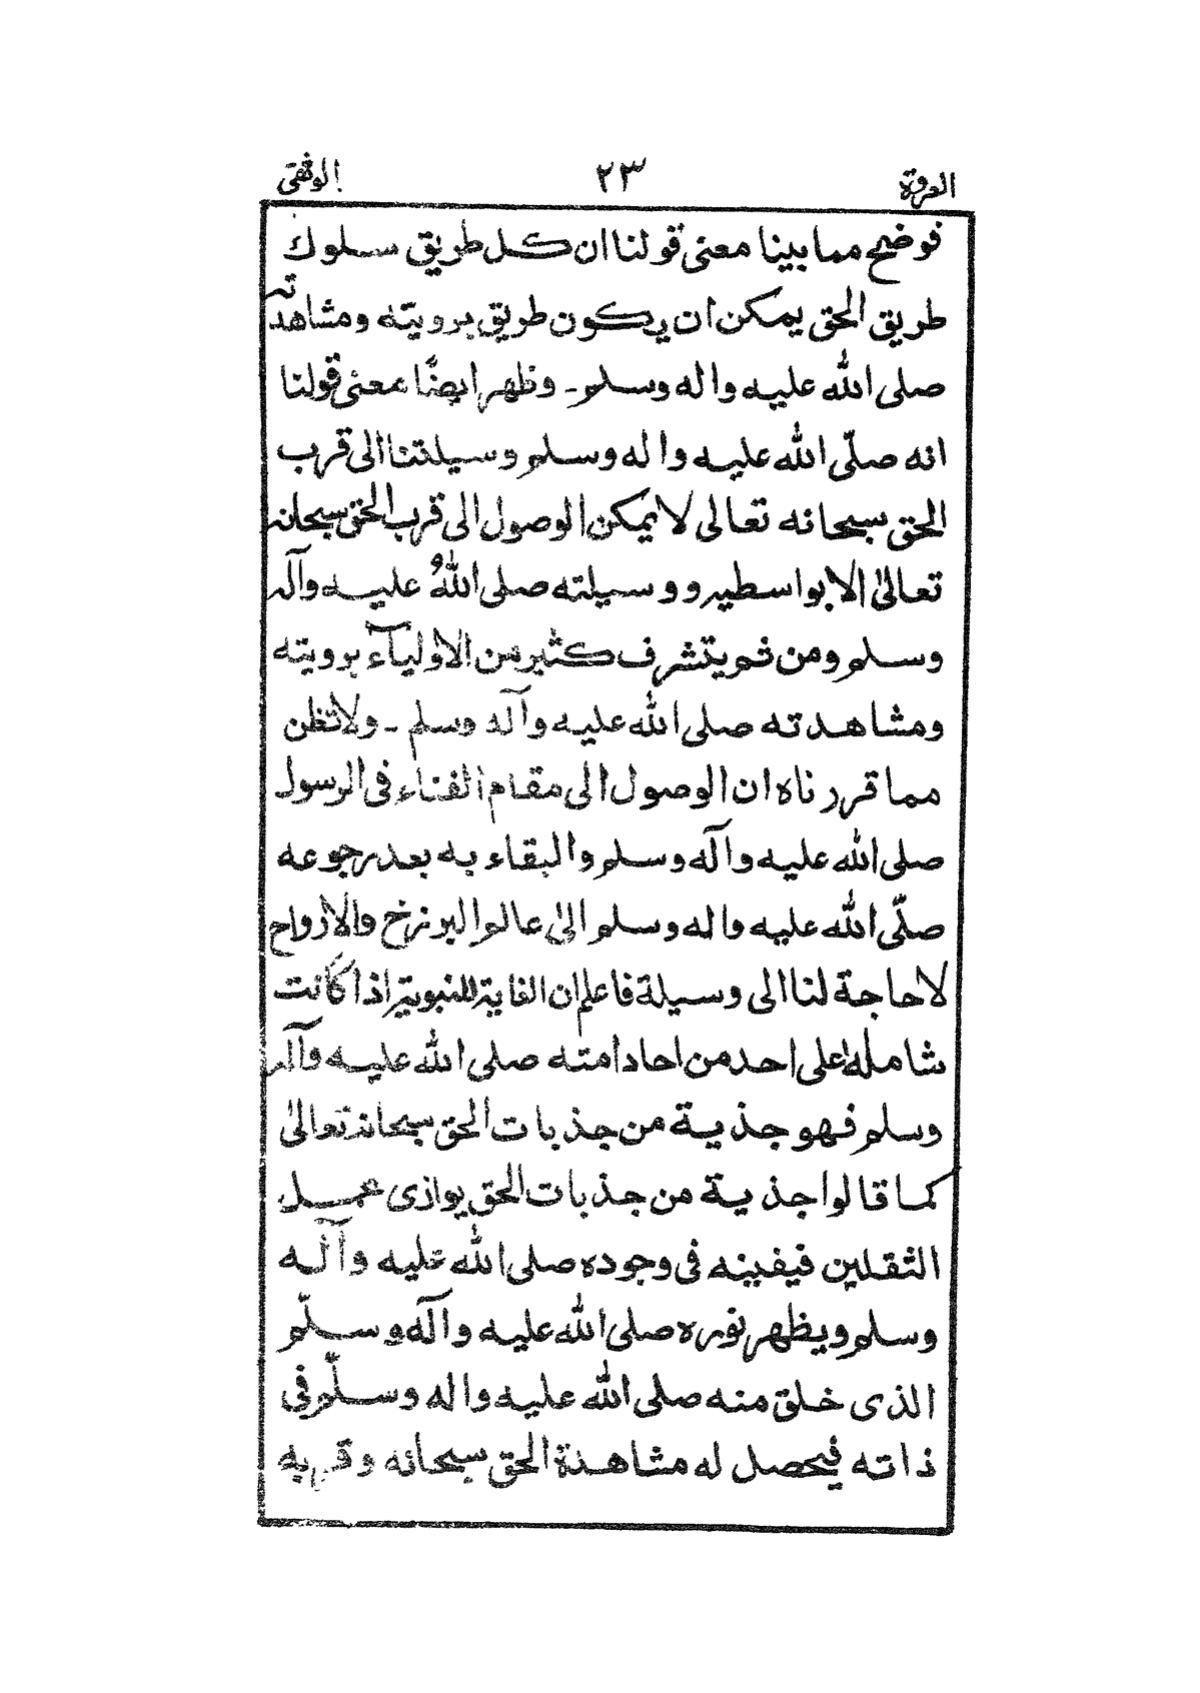 العروة ٢٣ الوثقى
فوضح مما بينا معنى قولنا ان كل طريق سلوك
طريق الحق يمكن ان يكون طريق برويته ومشاهدته
صلى الله عليه واله وسلم۔ وظهر ايضًا معنى قولنا
انه صلّى الله عليه واله وسلم وسيلتنا الى قرب
الحق سبحانه تعالى لا يمكن الوصول الى قرب الحق سبحانه
تعالىٰ الا بواسطيه ووسيلته صلى اللهُ عليه وآله
وسلم ومن ثم يتشرف كثير من الاوليآء برويته
ومشاهدته صلى الله عليه وآله وسلم ۔ ولا تظن
مما قررناه ان الوصول الى مقام الفناء فى الرسول
صلى الله عليه وآله وسلم والبقاء به بعد رجوعه
صلّى الله عليه واله وسلم الىٰ عالم البرزخ والارواح
لا حاجة لنا الى وسيلة فاعلم ان الغاية للنبوية اذا كانت
شاملة على احد من احاد امته صلى الله عليه وآله
وسلم فهو جذبة من جذبات الحق سبحانه تعالىٰ
كما قالوا جذبة من جذبات الحق يوازى عمل
الثقلين فيفينه فى وجوده صلى الله عليه وآله
وسلم ويظهر نوره صلى الله عليه وآله وسلّم
الذى خلق منه صلى الله عليه واله وسلّم فى
ذاته فيحصل له مشاهدة الحق سبحانه وقربه